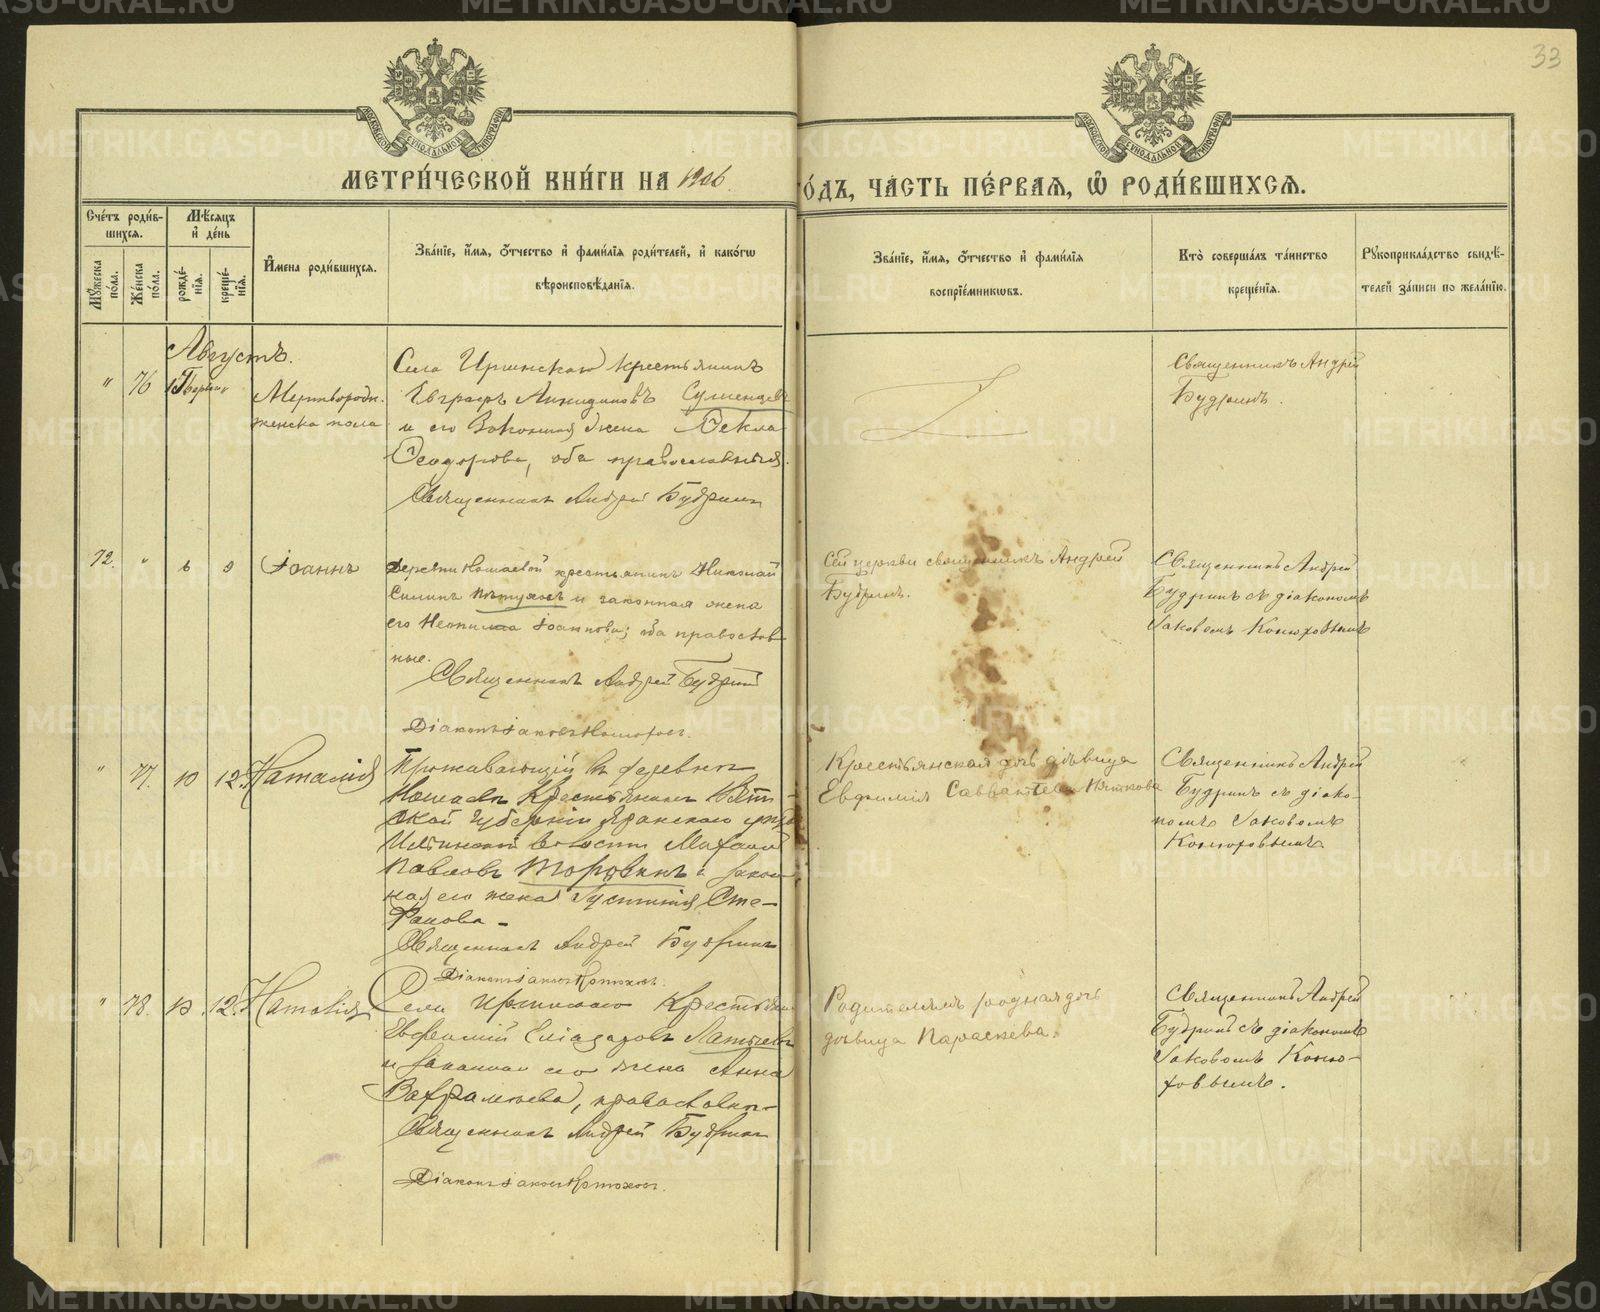 33
МОСКОВСКОЙ СѴНОДАЛЬНОЙ ТИПОГРАФІИ
МОСКОВСКОЙ СѴНОДАЛЬНОЙ ТИПОГРАФІИ
МЕТРИ́ЧЕСКОЙ КНИ́ГИ НА 1906.
ГО́ДЪ, ЧА́СТЬ ПЕ́РВАѦ, Ѿ РОДИ́ВШИХСѦ.
Сче́тъ роди́в-
шихсѧ.
Мꙋ́жеска по́ла.
Же́нска по́ла.
Мѣ́сѧцъ и҆ де́нь
рожде́-
нїѧ.
креще́-
нїѧ.
И҆мена̀ роди́вшихсѧ.
Зва́нїе, и҆́мѧ, ѻ҆́тчество и҆ фами́лїѧ роди́телей, и҆ како́гѡ
вѣроисповѣ́данїѧ.
Зва́нїе, и҆́мѧ, ѻ҆́тчество и҆ фами́лїѧ
воспрїе́мникѡвъ.
Кто̀ соверша́лъ та́инство
креще́нїѧ.
Рꙋкоприкла́дство свидѣ́-
телей за́писи по жела́нїю.
Августъ.
" 76 1
Мертворожд.
женска пола
Села Иргинскаго крестьянинъ
Евграфъ
и его законная жена Ѳекла
Ѳеодорова, оба православныя.
Священникъ Андрей Будринъ
Священникъ Андрей
Будринъ.
72. " 6 9 Іоаннъ
Деревни крестьянинъ Николай
Силинъ Пѣтуховъ и законная жена
его Іоаннова; оба православ
ные.
Священникъ Андрей Будринъ
Діаконъ Іаковъ
Сей церкви священникъ Андрей
Будринъ.
Священникъ Андрей
Будринъ съ діакономъ
Іаковомъ Конюховымъ
" 77. 10 12. Наталія
Проживающій въ деревни
крестьянинъ Вят-
ской губерніи Яранскаго
волости Михаилъ
Павловъ и закон
ная его жена Устинія Сте-
фанова
Священникъ Андрей Будринъ
Діаконъ Іаковъ
Крестьянская дочь дѣвица
Евфимія Савватѣева Пяткова
Священникъ Андрей
Будринъ съ діако-
номъ Іаковомъ
Конюховымъ
" 78. 10 12. Наталія
Села Иргинскаго крестьянинъ
Евфимій Еліазаровъ Латышевъ
и законная его жена Анна
православн.
Священникъ Андрей Будринъ
Діаконъ Іаковъ
Родителямъ родная дочь
дѣвица Параскева.
Священникъ Андрей
Будринъ съ діакономъ
Іаковомъ Коню-
ховымъ.
METRIKI.GASO-URAL.RU